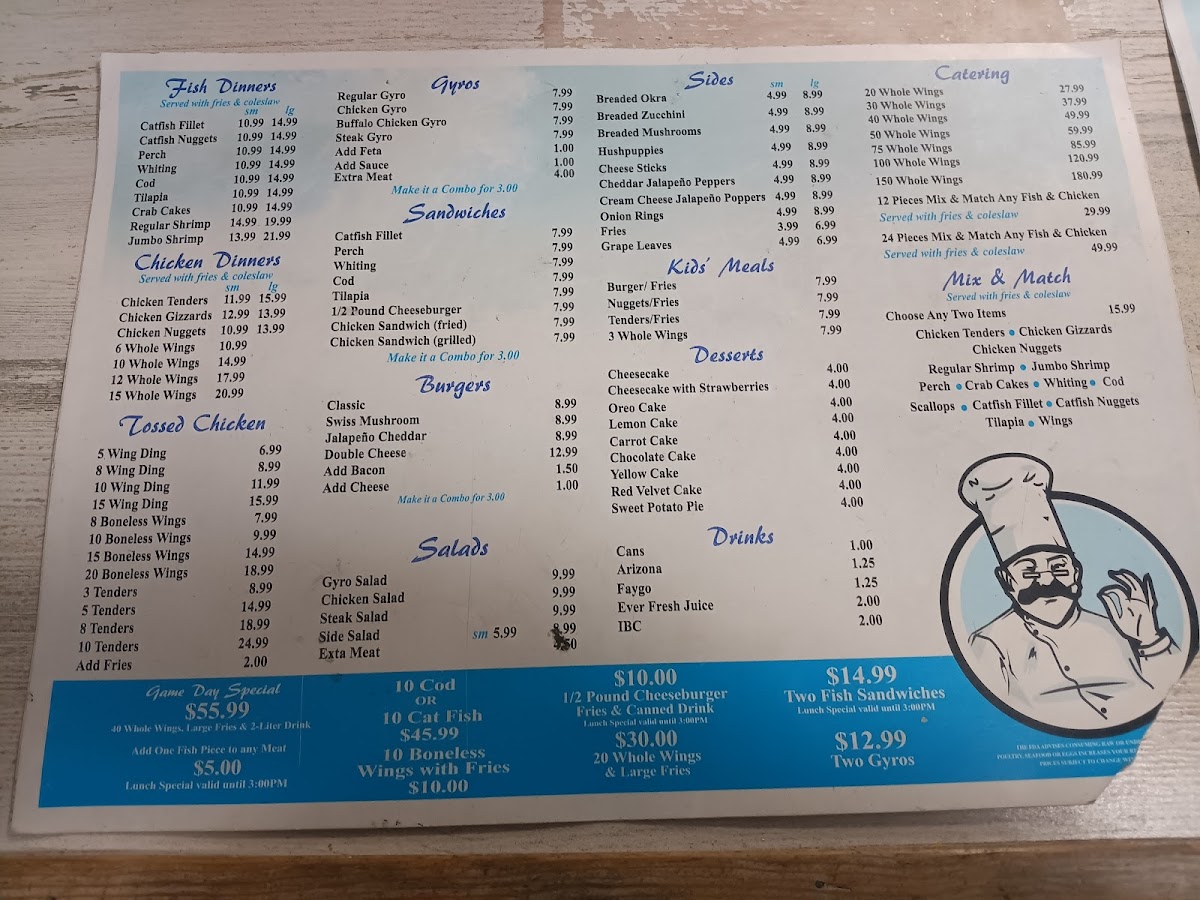 Fish Dinners
Served with fries & coleslaw
sm lg
Catfish Fillet 10.99 14.99
Catfish Nuggets 10.99 14.99
Perch 10.99 14.99
Whiting 10.99 14.99
Cod 10.99 14.99
Tilapia 10.99 14.99
Crab Cakes 10.99 14.99
Regular Shrimp 14.99 19.99
Jumbo Shrimp 13.99 21.99
Chicken Dinners
Served with fries & coleslaw
sm lg
Chicken Tenders 11.99 15.99
Chicken Gizzards 12.99 13.99
Chicken Nuggets 10.99 13.99
6 Whole Wings 10.99
10 Whole Wings 14.99
12 Whole Wings 17.99
15 Whole Wings 20.99
Tossed Chicken
5 Wing Ding 6.99
8 Wing Ding 8.99
10 Wing Ding 11.99
15 Wing Ding 15.99
8 Boneless Wings 7.99
10 Boneless Wings 9.99
15 Boneless Wings 14.99
20 Boneless Wings 18.99
3 Tenders 8.99
5 Tenders 14.99
8 Tenders 18.99
10 Tenders 24.99
Add Fries 2.00
Gyros
Regular Gyro 7.99
Chicken Gyro 7.99
Buffalo Chicken Gyro 7.99
Steak Gyro 7.99
Add Feta 1.00
Add Sauce 1.00
Extra Meat 4.00
Make it a Combo for 3.00
Sandwiches
Catfish Fillet 7.99
Perch 7.99
Whiting 7.99
Cod 7.99
Tilapia 7.99
1/2 Pound Cheeseburger 7.99
Chicken Sandwich (fried) 7.99
Chicken Sandwich (grilled) 7.99
Make it a Combo for 3.00
Burgers
Classic 8.99
Swiss Mushroom 8.99
Jalapeño Cheddar 8.99
Double Cheese 12.99
Add Bacon 1.50
Add Cheese 1.00
Make it a Combo for 3.00
Salads
Gyro Salad 9.99
Chicken Salad 9.99
Steak Salad 9.99
Side Salad sm 5.99 8.99
Exta Meat
Sides
sm lg
Breaded Okra 4.99 8.99
Breaded Zucchini 4.99 8.99
Breaded Mushrooms 4.99 8.99
Hushpuppies 4.99 8.99
Cheese Sticks 4.99 8.99
Cheddar Jalapeño Peppers 4.99 8.99
Cream Cheese Jalapeño Poppers 4.99 8.99
Onion Rings 4.99 8.99
Fries 3.99 6.99
Grape Leaves 4.99 6.99
Kids' Meals
Burger/ Fries 7.99
Nuggets/Fries 7.99
Tenders/Fries 7.99
3 Whole Wings 7.99
Desserts
Cheesecake 4.00
Cheesecake with Strawberries 4.00
Oreo Cake 4.00
Lemon Cake 4.00
Carrot Cake 4.00
Chocolate Cake 4.00
Yellow Cake 4.00
Red Velvet Cake 4.00
Sweet Potato Pie 4.00
Drinks
Cans 1.00
Arizona 1.25
Faygo 1.25
Ever Fresh Juice 2.00
IBC 2.00
Catering
20 Whole Wings 27.99
30 Whole Wings 37.99
40 Whole Wings 49.99
50 Whole Wings 59.99
75 Whole Wings 85.99
100 Whole Wings 120.99
150 Whole Wings 180.99
12 Pieces Mix & Match Any Fish & Chicken
Served with fries & coleslaw 29.99
24 Pieces Mix & Match Any Fish & Chicken
Served with fries & coleslaw 49.99
Mix & Match
Served with fries & coleslaw
Choose Any Two Items 15.99
Chicken Tenders • Chicken Gizzards
Chicken Nuggets
Regular Shrimp • Jumbo Shrimp
Perch • Crab Cakes • Whiting • Cod
Scallops • Catfish Fillet • Catfish Nuggets
Tilapia • Wings
Game Day Special
$55.99
40 Whole Wings, Large Fries & 2-Liter Drink
Add One Fish Piece to any Meat
$5.00
Lunch Special valid until 3:00PM
10 Cod
OR
10 Cat Fish
$45.99
10 Boneless
Wings with Fries
$10.00
$10.00
1/2 Pound Cheeseburger
Fries & Canned Drink
Lunch Special valid until 3:00PM
$30.00
20 Whole Wings
& Large Fries
$14.99
Two Fish Sandwiches
Lunch Special valid until 3:00PM
$12.99
Two Gyros
THE FDA ADVISES CONSUMING RAW OR
POULTRY, SEAFOOD OR EGGS INCREASES YOUR
PRICES SUBJECT TO CHANGE